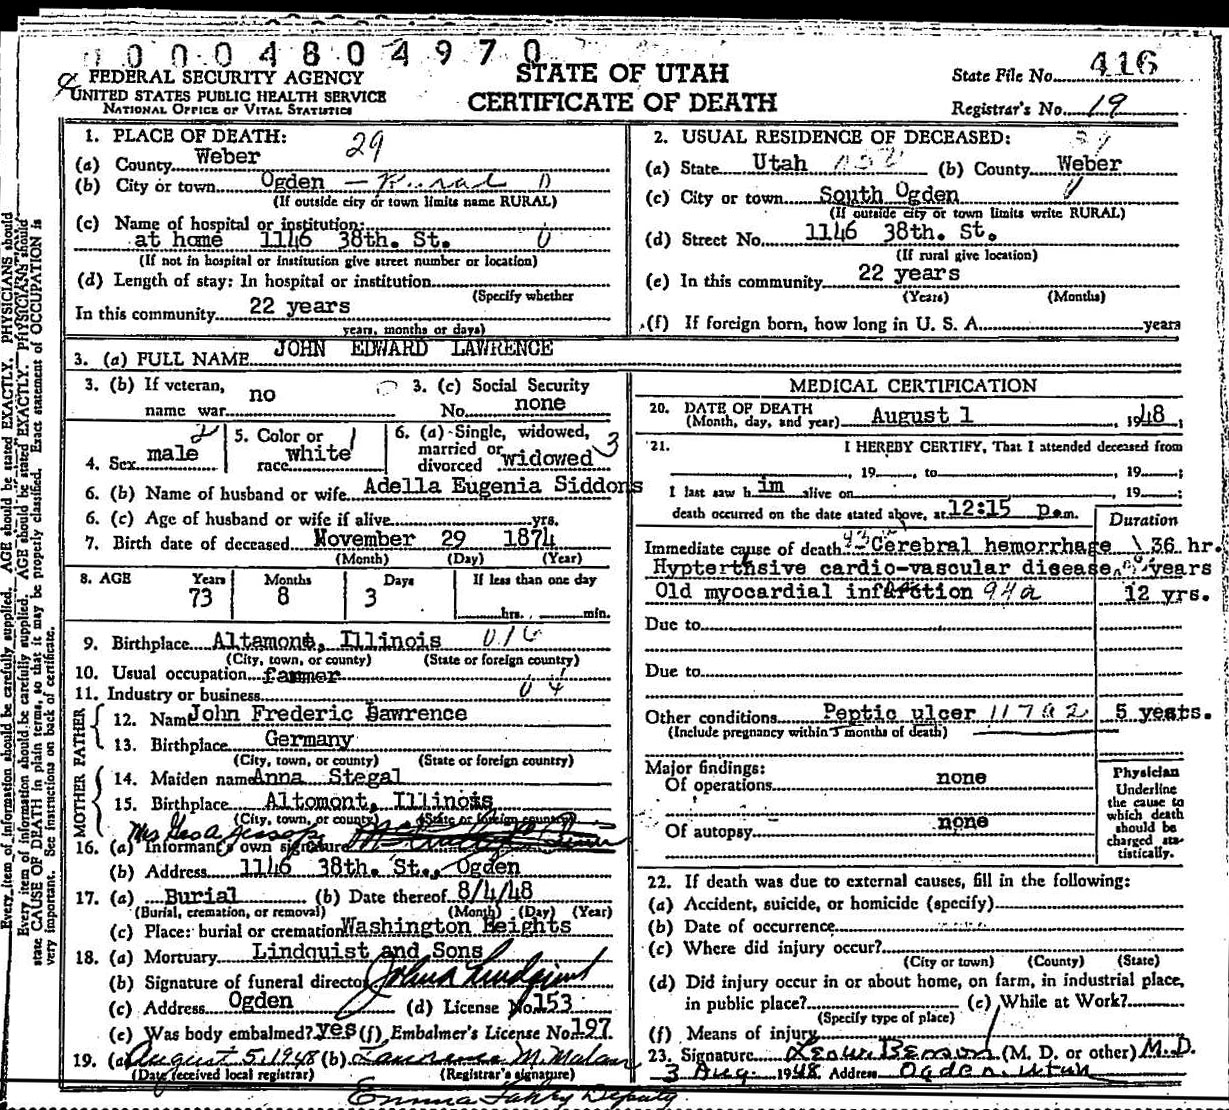 0 0 0 4 8 0 4 9 7 0
FEDERAL SECURITY AGENCY
UNITED STATES PUBLIC HEALTH SERVICE
NATIONAL OFFICE OF VITAL STATISTICS
STATE OF UTAH
CERTIFICATE OF DEATH
State File No. 416
Registrar's No. 19
1. PLACE OF DEATH: 29
(a) County Weber
(b) City or town Ogden — Rural
(If outside city or town limits name RURAL)
(c) Name of hospital or institution:
at home 1146 38th. St.
(If not in hospital or institution give street number or location)
(d) Length of stay: In hospital or institution
(Specify whether
In this community 22 years
years, months or days)
2. USUAL RESIDENCE OF DECEASED:
(a) State Utah (b) County Weber
(c) City or town South Ogden
(If outside city or town limits write RURAL)
(d) Street No. 1146 38th. St.
(If rural give location)
(e) In this community 22 years
(Years) (Months)
(f) If foreign born, how long in U. S. A. years
3. (a) FULL NAME JOHN EDWARD LAWRENCE
3. (b) If veteran, name war no
3. (c) Social Security No. none
4. Sex male
5. Color or race white
6. (a) Single, widowed, married or divorced widowed 3
6. (b) Name of husband or wife Adella Eugenia Siddons
6. (c) Age of husband or wife if alive yrs.
7. Birth date of deceased November 29 1874
(Month) (Day) (Year)
8. AGE Years Months Days If less than one day
73 8 3 hrs. min.
9. Birthplace Altamont, Illinois
(City, town, or county) (State or foreign country)
10. Usual occupation farmer
11. Industry or business
FATHER
12. Name John Frederic Lawrence
13. Birthplace Germany
(City, town, or county) (State or foreign country)
MOTHER
14. Maiden name Anna Stegal
15. Birthplace Altomont, Illinois
(City, town, or county) (State or foreign country)
Mrs Geo A Jessop
16. (a) Informant's own signature
(b) Address 1146 38th. St., Ogden
17. (a) Burial (b) Date thereof 8/4/48
(Burial, cremation, or removal) (Month) (Day) (Year)
(c) Place: burial or cremation Washington Heights
18. (a) Mortuary Lindquist and Sons
(b) Signature of funeral director John A Lindquist
(c) Address Ogden (d) License No. 153
(e) Was body embalmed? yes (f) Embalmer's License No. 197
19. (a) August 5, 1948 (b) Laurence M. Malan
(Date received local registrar) (Registrar's signature)
Deputy
MEDICAL CERTIFICATION
20. DATE OF DEATH
(Month, day, and year) August 1, 1948;
21. I HEREBY CERTIFY, That I attended deceased from
, 19 , to , 19 ;
I last saw him alive on , 19 ;
death occurred on the date stated above, at 12:15 p.m.
Duration
Immediate cause of death Cerebral hemorrhage 36 hr.
Hypterthsive cardio-vascular disease years
Old myocardial infarction 94a 12 yrs.
Due to
Due to
Other conditions Peptic ulcer 5 years.
(Include pregnancy within 3 months of death)
Major findings:
Of operations none
Of autopsy none
Physician
Underline
the cause to
which death
should be
charged sta-
tistically.
22. If death was due to external causes, fill in the following:
(a) Accident, suicide, or homicide (specify)
(b) Date of occurrence
(c) Where did injury occur?
(City or town) (County) (State)
(d) Did injury occur in or about home, on farm, in industrial place,
in public place? (e) While at Work?
(Specify type of place)
(f) Means of injury
23. Signature Benson (M. D. or other) M.D.
3 Aug. 1948 Address Ogden, Utah
Every item of information should be carefully supplied. AGE should be stated EXACTLY. PHYSICIANS should
state CAUSE OF DEATH in plain terms, so that it may be properly classified. Exact statement of OCCUPATION is
very important. See instructions on back of certificate.